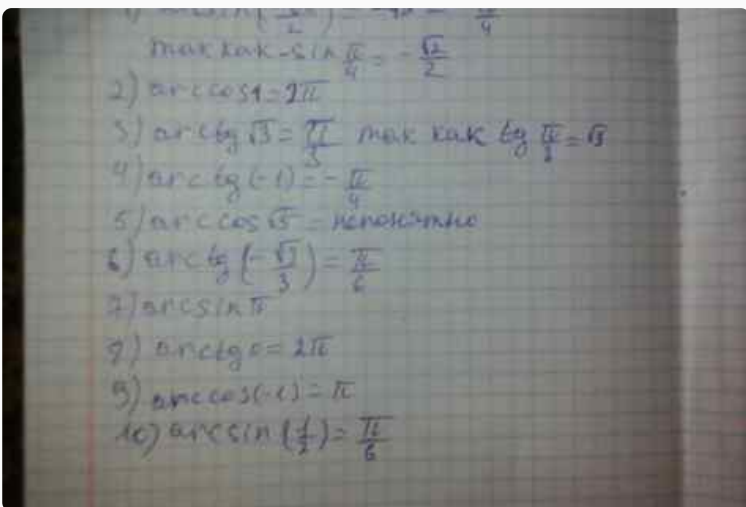 1) arcsin(-√2/2) = -π/4
так как -sin π/4 = -√2/2
2) arccos1=2π
3) arctg √3 = π/3 так как tg π/3 = √3
4) arctg(-1) = -π/4
5) arccos √5 = непонятно
6) arctg(-√3/3) = π/6
7) arcsin π
8) arctg 0 = 2π
9) arccos(-1) = π
10) arcsin(1/2) = π/6